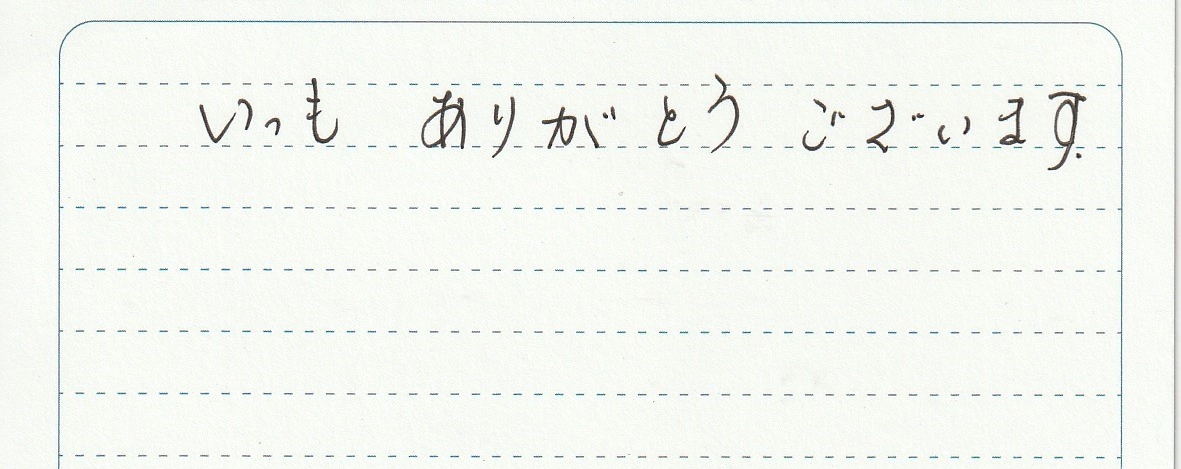 いつも ありがとう ございます.